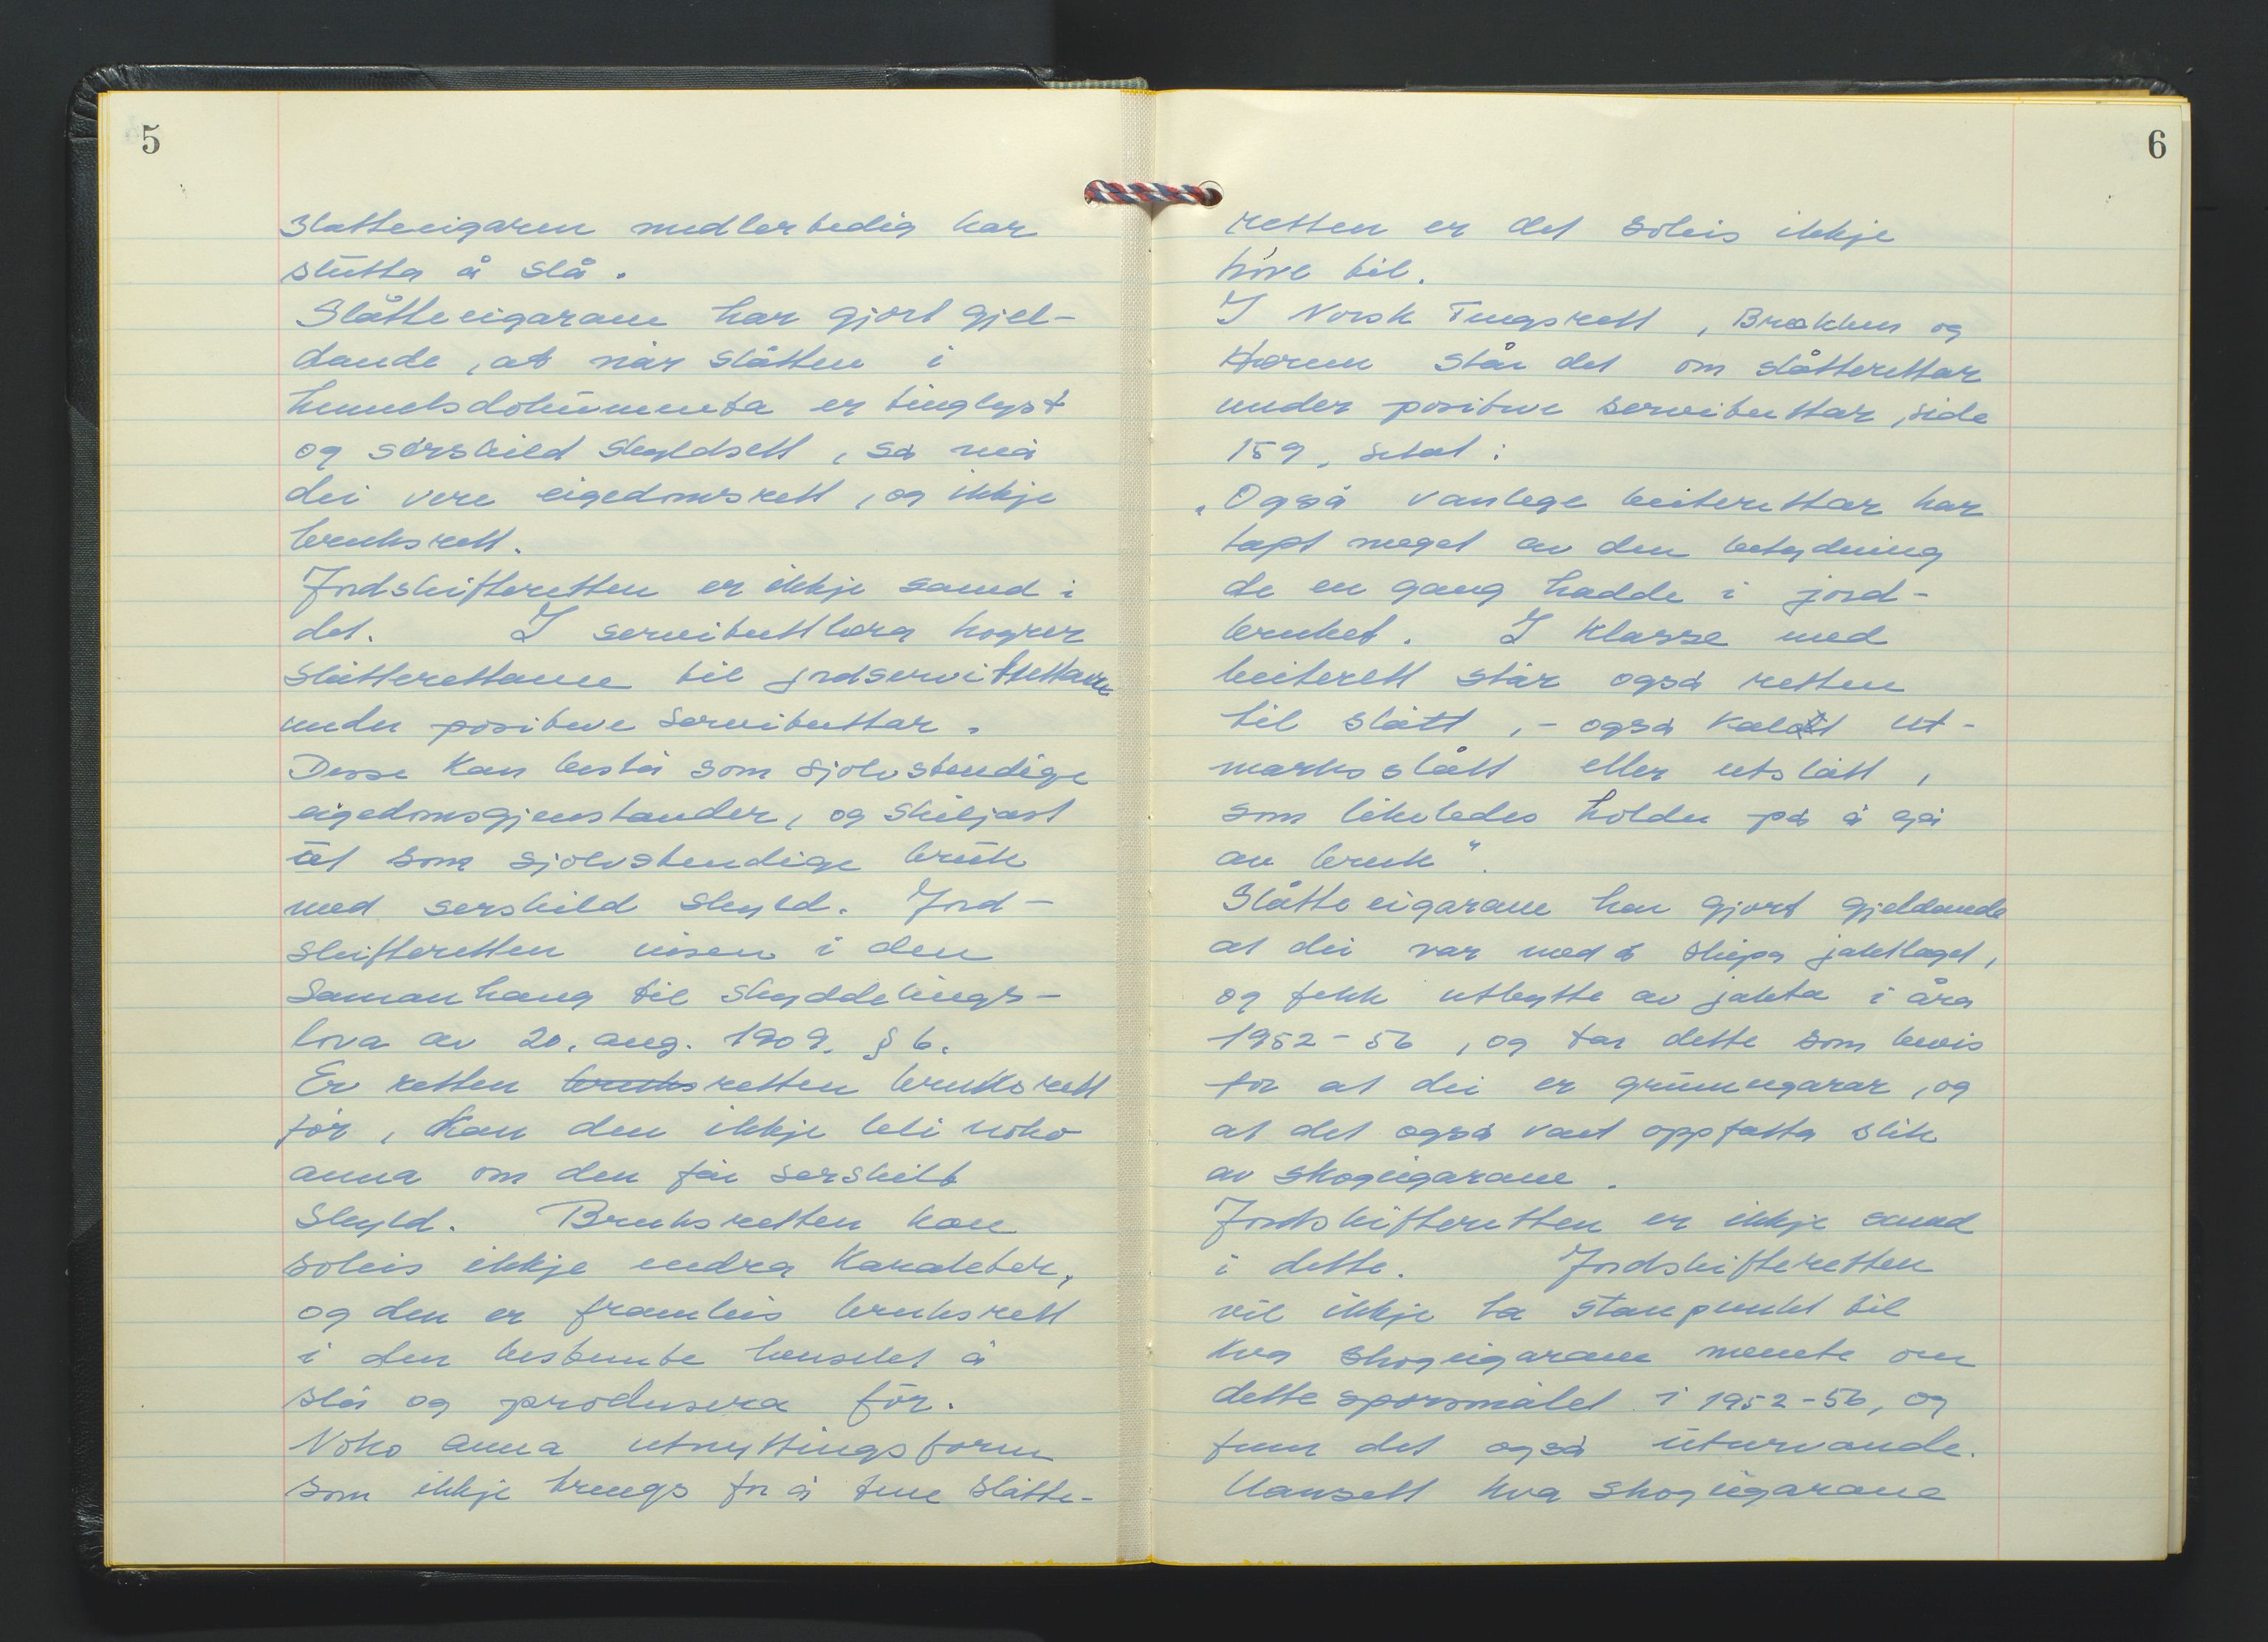 5
Slåtteeigaren midlertidig har
slutta å slå.
Slåtteeigarane har gjort gjel-
dande, at når slåtten i
heimelsdokumenta er tinglyst
og sérskild skyldsett, så må
dei vere eigedomsrett, og ikkje
bruksrett.
Jordskifteretten er ikkje samd i
det. I servituttlæra høyrer
slåtterettane til jordservituttane
under positive servituttar.
Desse kan bestå som sjølvstendige
eigedomsgjenstander, og skiljast
ut som sjølvstendige bruk
med serskild skyld. Jord-
skifteretten viser i den
samanheng til skylddelings-
lova av 20. aug. 1909. § 6.
Er retten bruksretten bruksrett
før, kan den ikkje bli noko
anna om den får serskilt
skyld. Bruksretten kan
soleis ikkje endra karakter,
og den er framleis bruksrett
i den bestemte hensikt å
slå og produsera fôr.
Noko anna utnyttingsform
som ikkje trengs for å tene slåtte-
6
retten er det soleis ikkje
høve til.
I Norsk Tingsrett, Brækhus og
Hærem står det om slåtterettar
under positive servituttar, side
159, sitat:
"Også vanlege beiterettar har
tapt meget av den betydning
de en gang hadde i jord-
bruket. I klasse med
beiterett står også retten
til slått, - også kalt ut-
marksslått eller utslått,
som likeledes holder på å gå
av bruk".
Slåtteeigarane har gjort gjeldande
at dei var med å skipa jaktlaget,
og fekk utbytte av jakta i åra
1952-56, og tar dette som bevis
for at dei er grunneigarar, og
at det også vart oppfatta slik
av skogeigarane.
Jordskifteretten er ikkje samd
i dette. Jordskifteretten
vil ikkje ta stanpunkt til
kva skogeigarane mente om
dette spørsmålet i 1952-56, og
finn det også uturvande.
Uansett kva skogeigarane